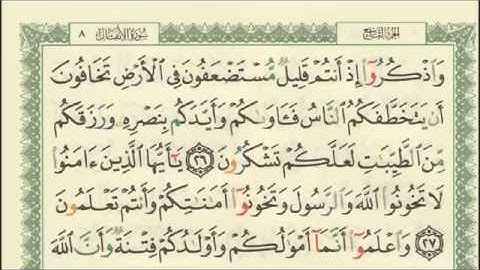 الجزء التاسع سورة الأنفال ٨
وَاذْكُرُوٓا إِذْ أَنتُمْ قَلِيلٌ مُّسْتَضْعَفُونَ فِي الْأَرْضِ تَخَافُونَ
أَن يَتَخَطَّفَكُمُ النَّاسُ فَـَٔاوَىٰكُمْ وَأَيَّدَكُم بِنَصْرِهِۦ وَرَزَقَكُم
مِّنَ الطَّيِّبَٰتِ لَعَلَّكُمْ تَشْكُرُونَ ٢٦ يَٰٓأَيُّهَا الَّذِينَ ءَامَنُوا
لَا تَخُونُوا اللَّهَ وَالرَّسُولَ وَتَخُونُوٓا أَمَٰنَٰتِكُمْ وَأَنتُمْ تَعْلَمُونَ
٢٧ وَاعْلَمُوٓا أَنَّمَآ أَمْوَٰلُكُمْ وَأَوْلَٰدُكُمْ فِتْنَةٌ وَأَنَّ اللَّهَ